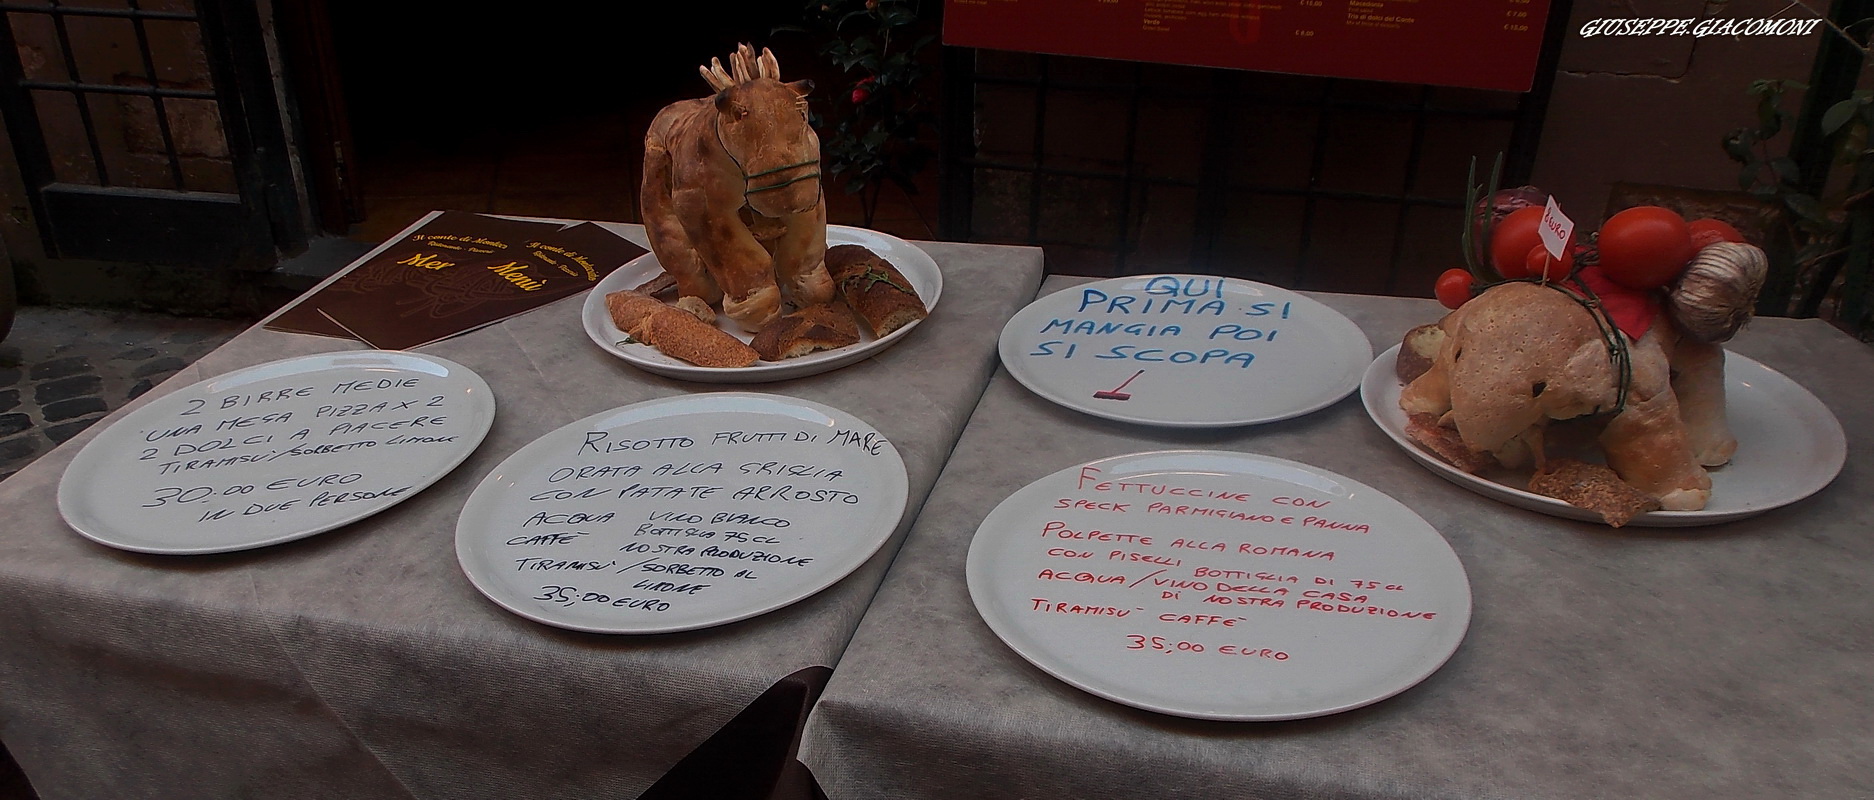 GIUSEPPE.GIACOMONI
Verde
Macedonia
Tris di dolci del Conte
Menù
2 BIRRE MEDIE
UNA MEGA PIZZA X 2
2 DOLCI A PIACERE
TIRAMISU'/SORBETTO LIMONE
30.00 EURO
IN DUE PERSONE
RISOTTO FRUTTI DI MARE
ORATA ALLA GRIGLIA
CON PATATE ARROSTO
ACQUA VINO BIANCO
BOTTIGLIA 75 CL
CAFFE' NOSTRA PRODUZIONE
TIRAMISU'/SORBETTO AL
LIMONE
35;00 EURO
QUI
PRIMA SI
MANGIA POI
SI SCOPA
FETTUCCINE CON
SPECK PARMIGIANO E PANNA
POLPETTE ALLA ROMANA
CON PISELLI BOTTIGLIA DI 75 CL
ACQUA/VINO DELLA CASA
DI NOSTRA PRODUZIONE
TIRAMISU' CAFFE'
35;00 EURO